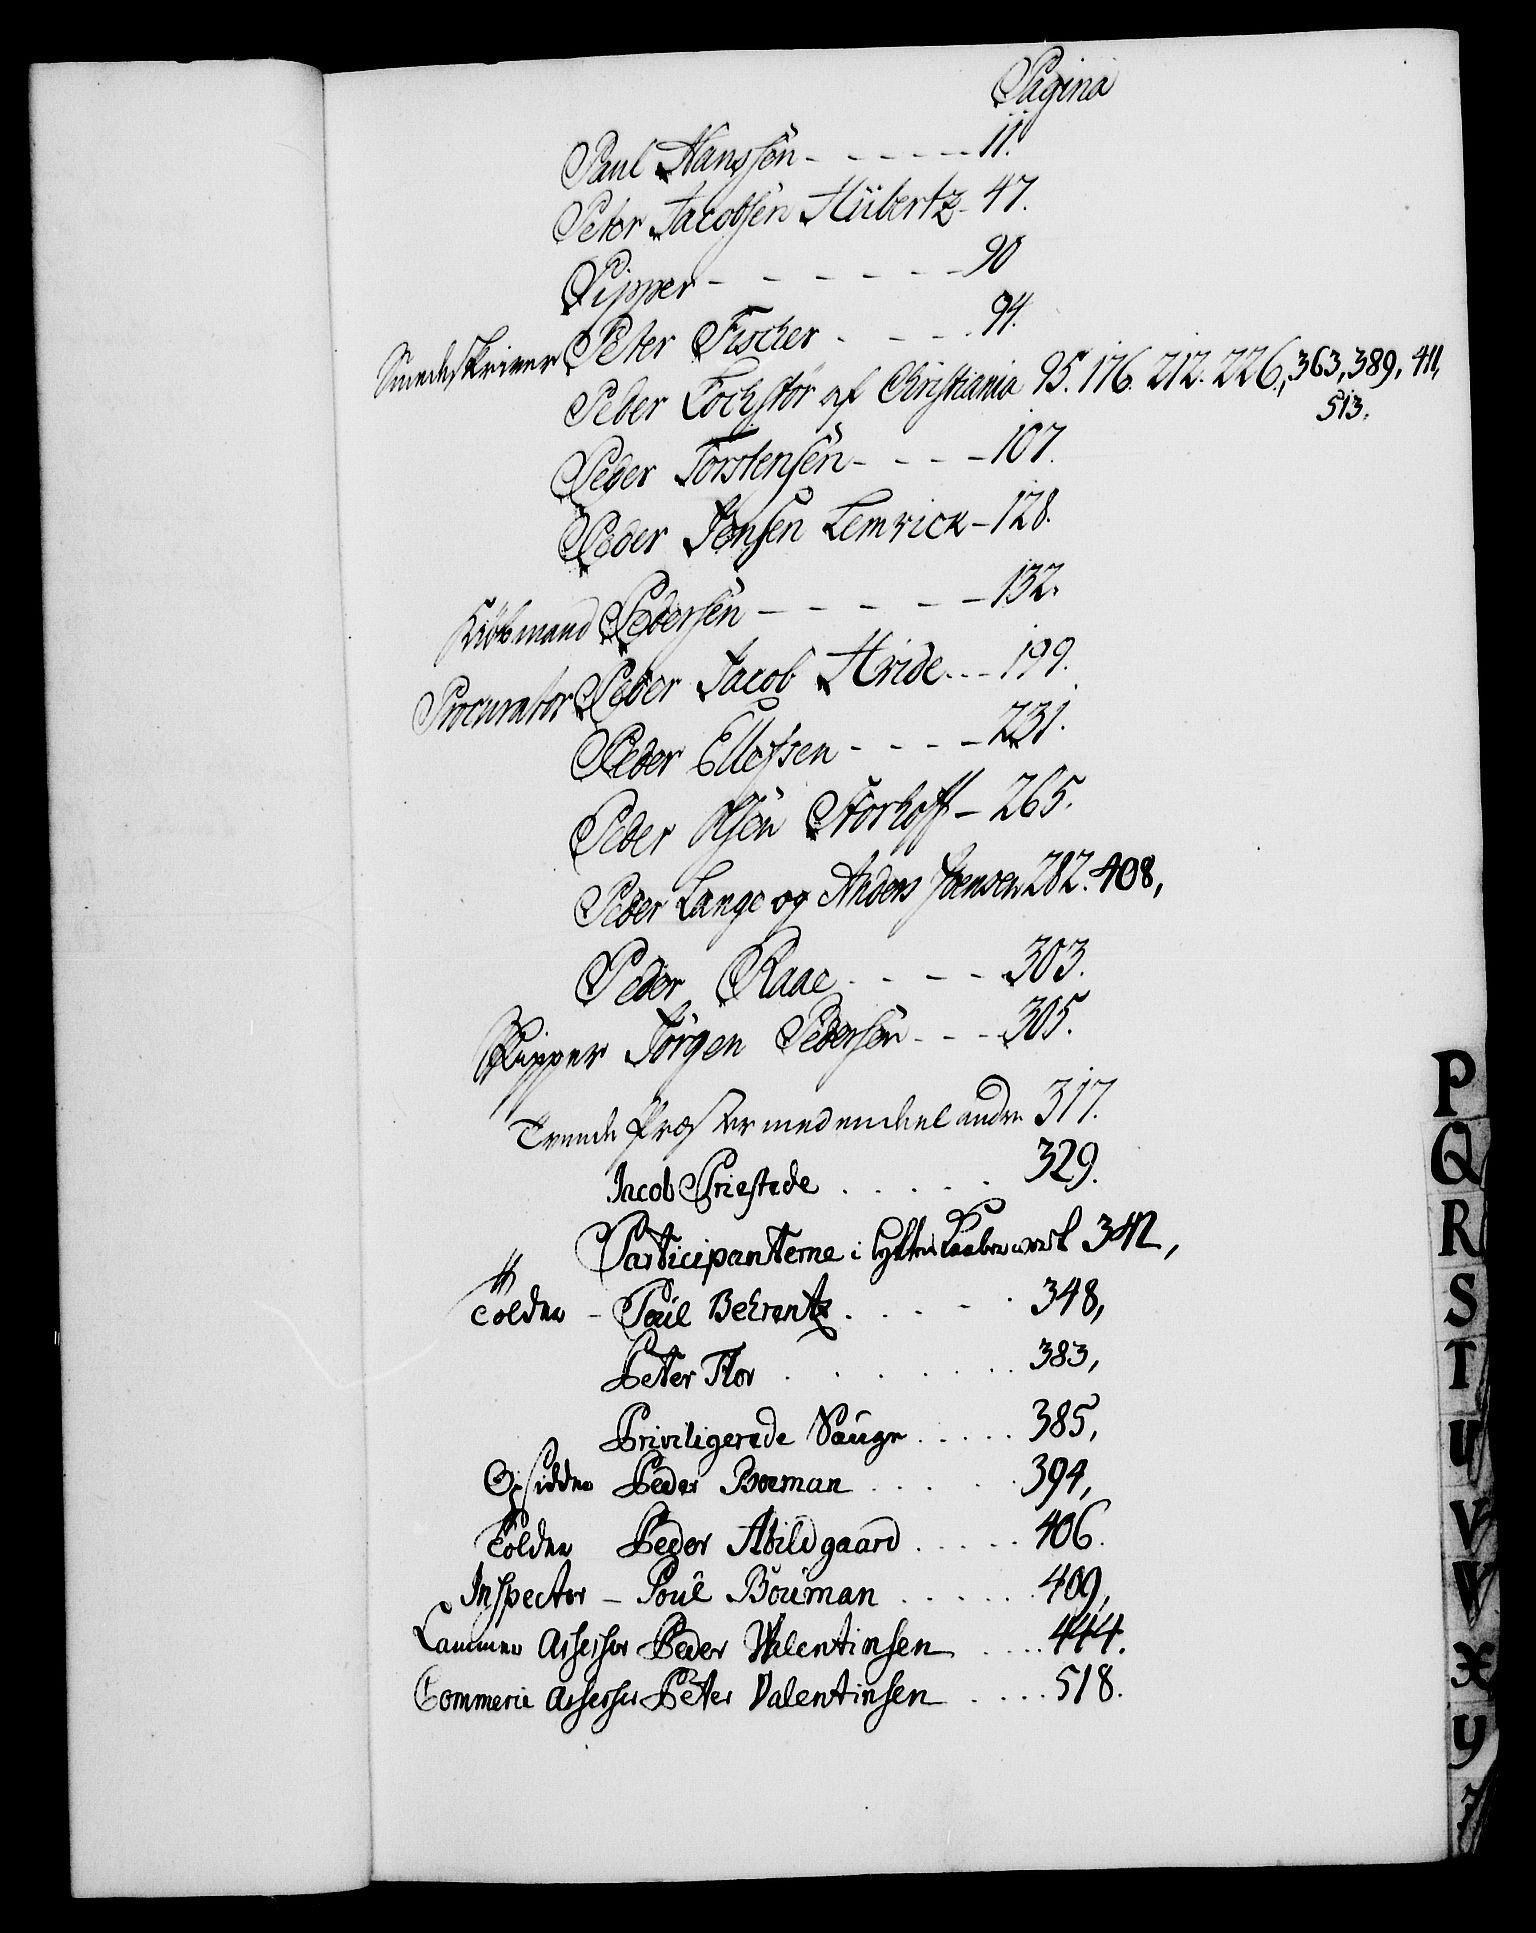 Pagina
Paul Hanssen - - - - - - 11.
Peter Jacobsen Hübertz - 47.
Pipper - - - - - - - 90
Peter Fischer - - - - 94.
Peder Lochstör af Christiania 95. 176. 212. 226, 363, 389, 411,
513.
Peder Torstensen - - - - 107.
Peder Jensen Lemvick - 128.
Kiöbmand Pedersen - - - - - 132.
Procurator Peder Jacob Hvide - - - 199.
Peder Ellefsen - - - - 231.
Peder Olsen Storhoff - 265.
Peder Lange og Anders Joensen 282. 408,
Peder Raae - - - - 303.
Skipper Jörgen Pedersen - - - 305.
317.
Jacob Priestede . . . . . 329.
Participanterne i Kaaberwerk 342,
Tolder - Poul Behrentz . - - - . 348,
Peter Flor . . . . . . . 383,
Priviligerede Sauge . . . . . 385,
Opsidder Peder Boeman . . . . . 394,
Tolder Peder Abildgaard . . . . . 406.
Inspector - Poul Bouman . . . . . . 409,
Cammer Assessor Peder Walentinsen . . . . 444.
Commerie Assessor Peter Valentinsen . . . . 518.
P
Q
R
S
T
U
V
W
X
Y